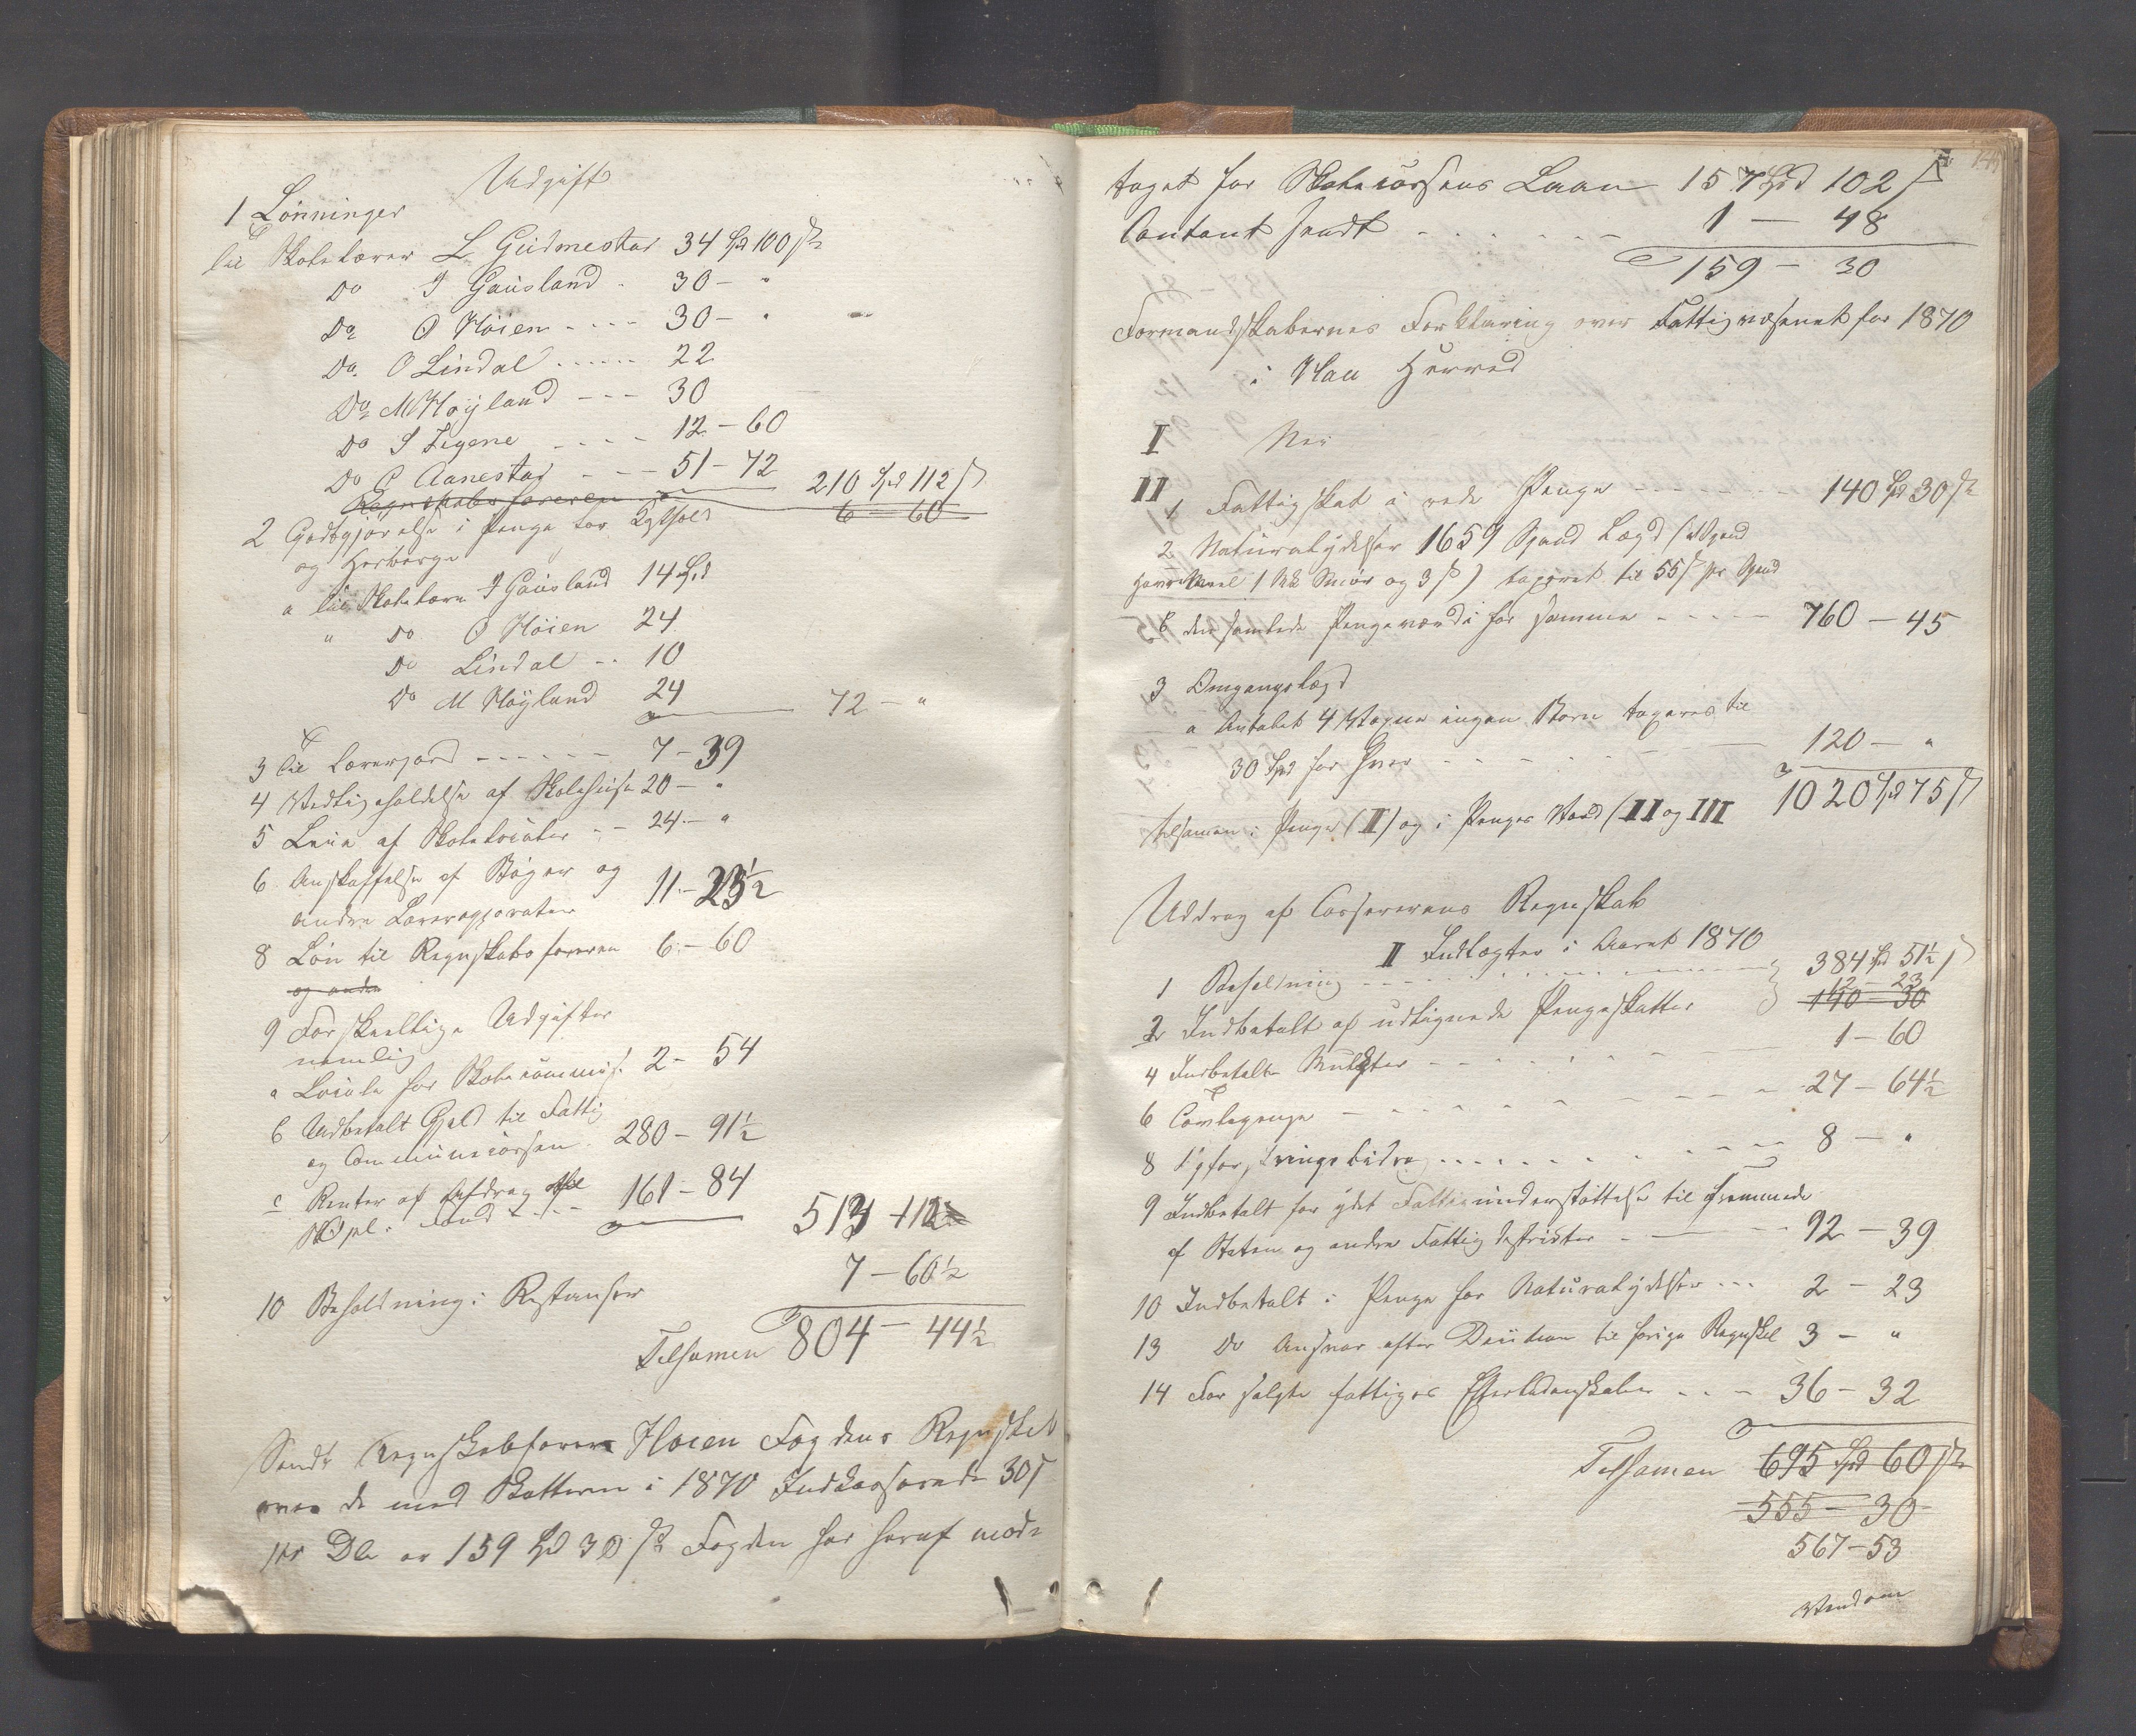 Udgift
1 Lønninger
til Skolelærer L Gudmestad 34 Spd 100 ß
Do I Gausland - 30 - "
Do O Høien - - - - 30 - "
Do O Lindal - - - - - 22
Do M Høyland - - - 30
Do S Tegene - - - - 12 - 60
Do P Aanestad - - - 51 - 72 210 Spd 112 ß
Regnskabsføreren 6 - 60
2 Godtgjørelse i Penge for Kosthold
og Herberge
a til Skolelærer I Gausland 14 Spd
" do O Høien 24
Do Lindal - - 10
Do M Høyland 24 72 - "
3 Til Lærerjord - - - - - - 7 - 39
4 Vedligeholdelse af Skolehuse 20 - "
5 Leie af Skolelocaler - - 24 - "
6 Anskaffelse af Bøger og
andre Læreapparater 11 - 23½
8 Løn til Regnskabsføreren 6 - 60
og andre
9 Forskjellige Udgifter
nemlig
a Locale for Skolecommis. 2 - 54
b Udbetalt Gjeld til Fattig
og Communecassen 280 - 91½
c Renter af Afdrag
Fond - - - 161 - 84 513 - 112
7 - 60½
10 Beholdning i Restanser
Tilsamen 804 - 44½
Sendt Regnskabsfører Høien Fogdens Regnskab
over de med Skatterne i 1870 Indkasserede 30 ß
pr Dlr er 159 Spd 30 ß Fogden har heraf mod-
taget for Skolecassens Laan 157 Spd 102 ß
Contant sendt - - - - - - 1 - 48
159 - 30
Formandskabernes Forklaring over Fattigvæsenet for 1870
i Haa Herred
I Nei
II 1 Fattigskat i rede Penge - - - - - - 140 Spd 30 ß
2 Naturalydelser 1659 Spand Lægd (1 Spand
Havremeel 1 Mk Smør og 3 ß) taxeret til 55 ß pr Spand
b den samlede Pengeværdi for samme - - - - - 760 - 45
3 Omgangslægd
a Antalet 4 Voxne ingen Børn taxeres til
30 Spd for hver - - - - - 120 - "
tilsamen i Penge (II) og i Penges Værd (II og III 1020 Spd 75 ß
Uddrag af Cassererens Regnskab
II Indtægter i Aaret 1870
1 Beholdning - - - - - - - 384 Spd 51½ ß
12 - 23
2 Indbetalt af udlignede Pengeskatter 140 - 30
4 Indbetalte Mulkter - - - - - - 1 - 60
6 Comtepenge - - - - - - - - 27 - 64½
8 Opfostringsbidrag - - - - - - - - 8 - "
9 Indbetalt for ydet Fattigunderstøttelse til fremmede
af Staten og andre Fattigdistricter - - - 92 - 39
10 Indbetalt i Penge for Naturalydelser - - - 2 - 23
13 Do Ansvar efter Decition til forige Regnskb 3 - "
14 For solgte fattiges Efterladenskaber - - - 36 - 32
Tilsamen 695 Spd 60 ß
555 - 30
567 - 53
Vend om